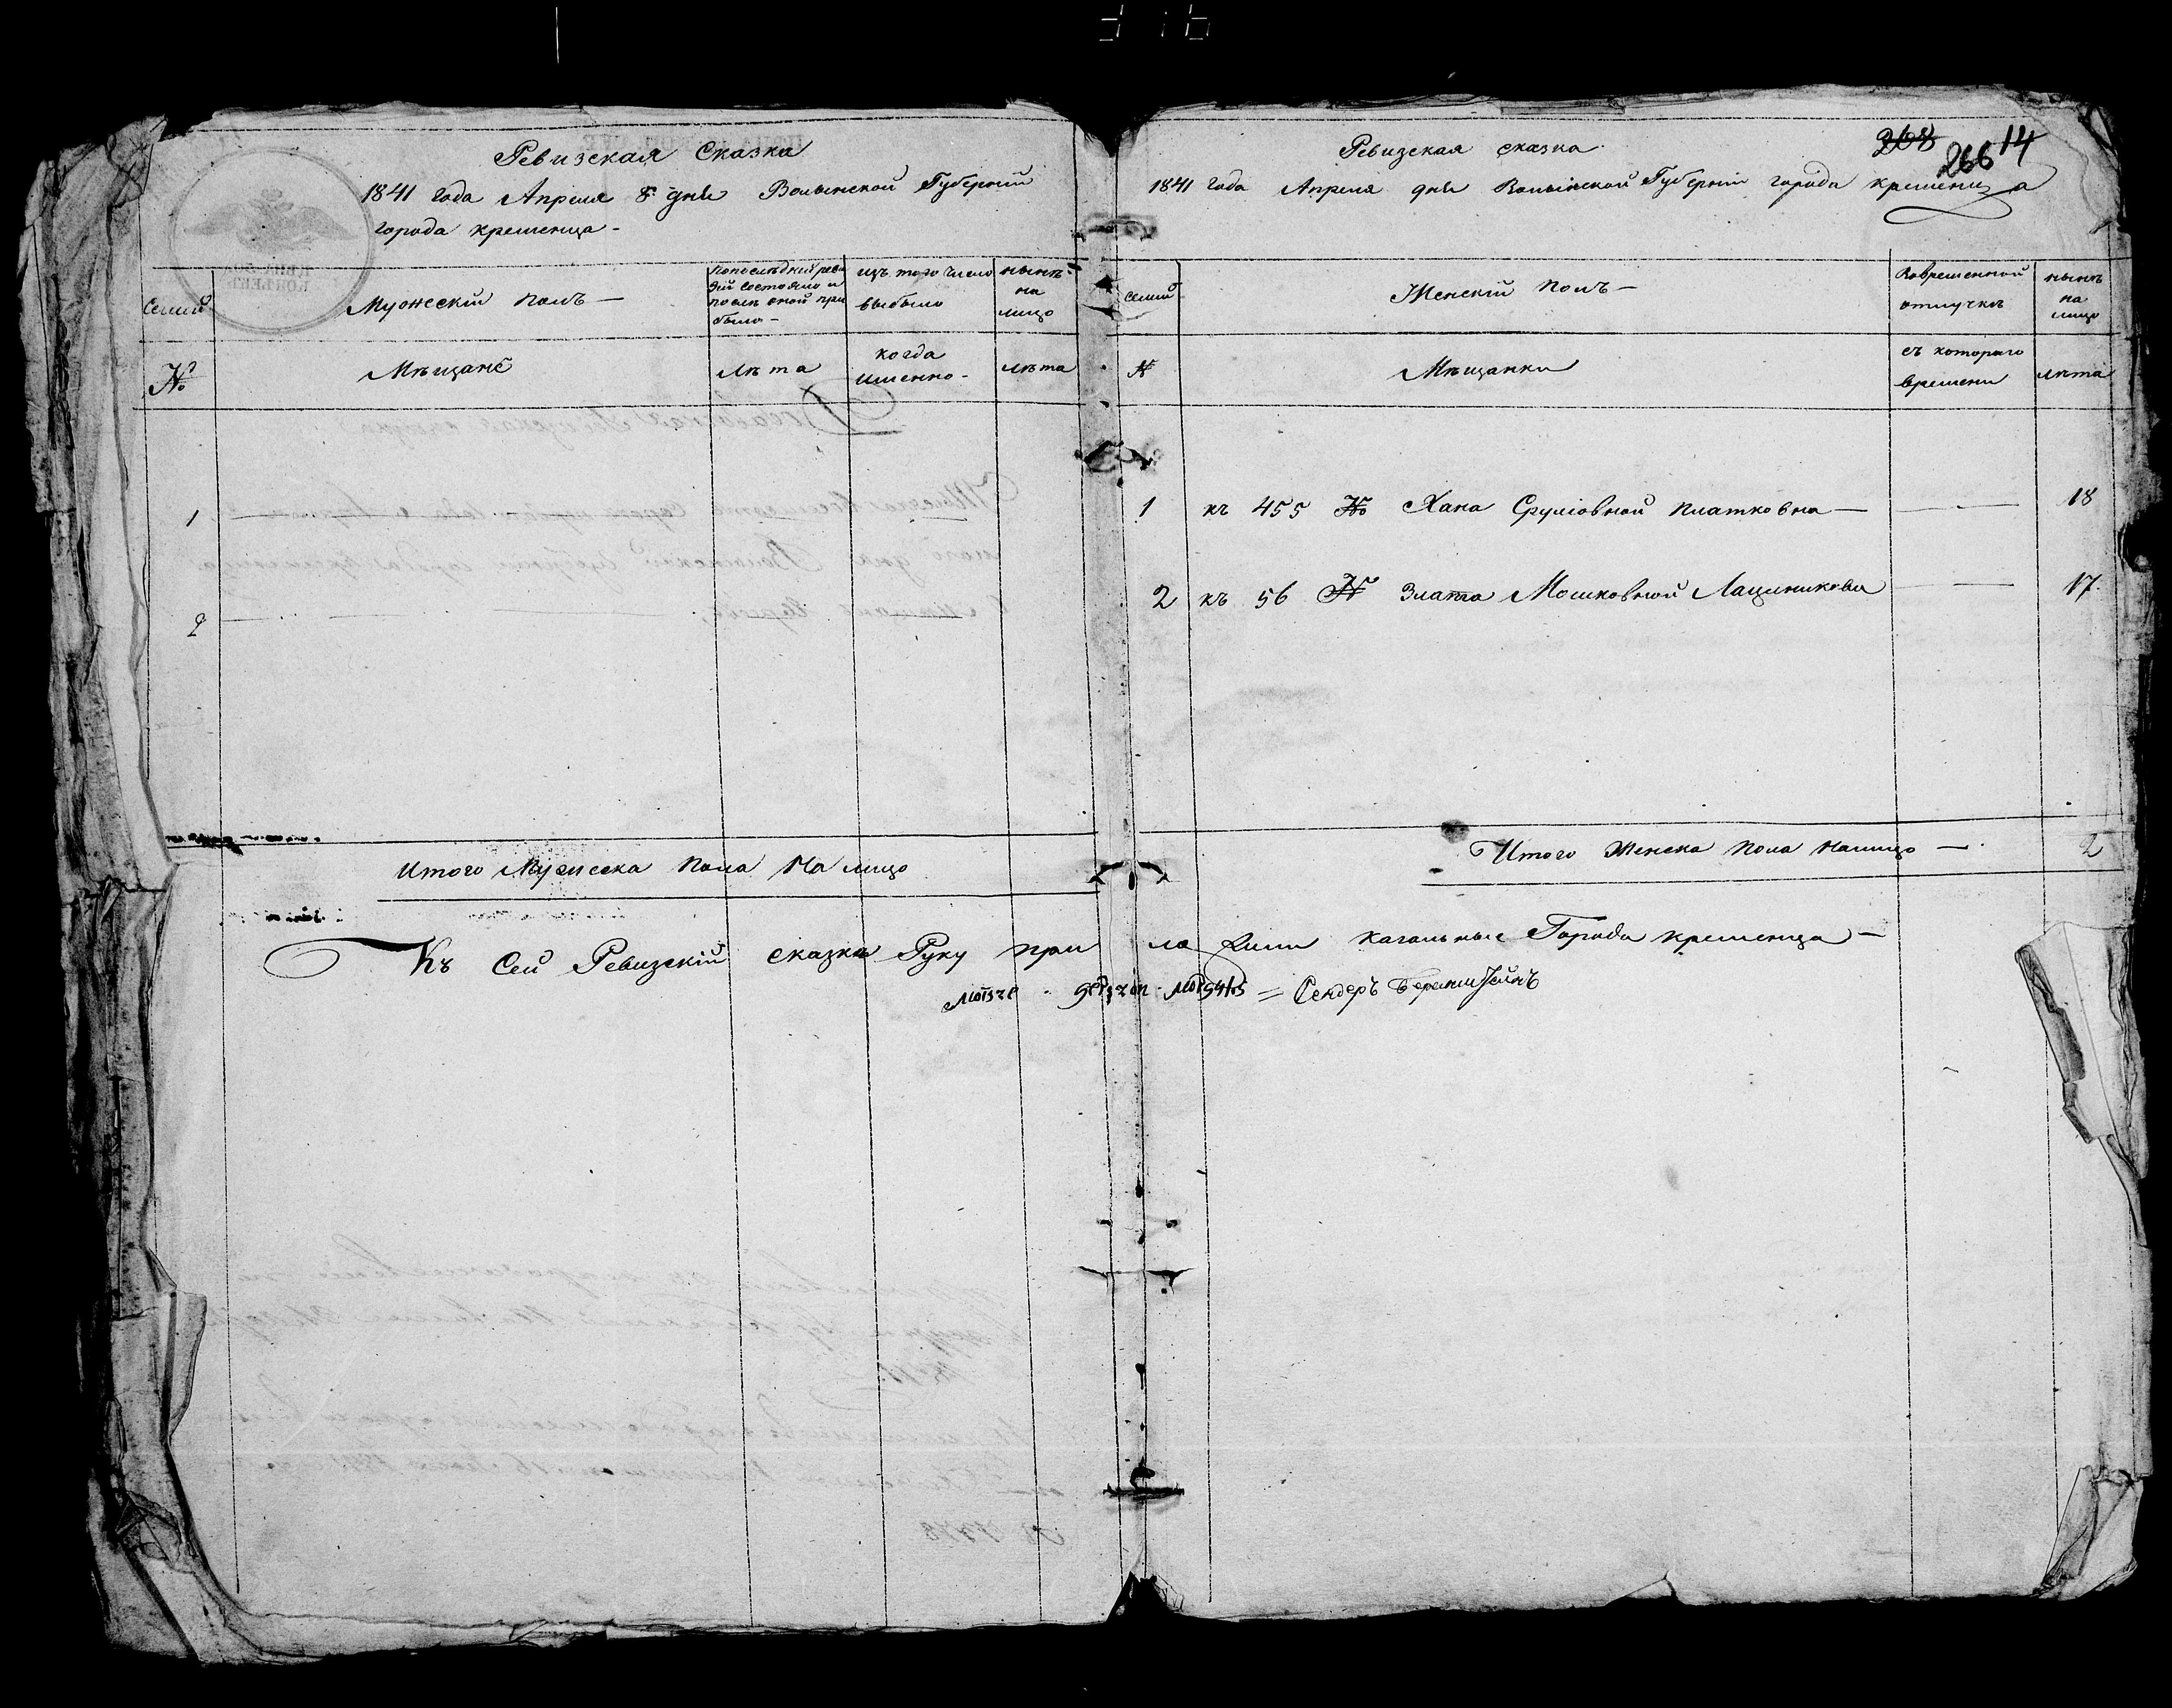 Ревизская Сказка
1841 года Апреля 8. дня Волынской Губерніи
города кременца -
Семий
Мужескій полъ —
по последней реви
зіи состояло и
после оной при
было —
изъ того число
выбыло
ныне
на
лицо
№
Мѣщане
лѣта
когда
именно -
лѣта
1
2
Итого Мужеска Пола На лицо
Ревизская сказка
268
266
14
1841 года Апреля дня Волынской Губерніи города кременца
семий
Женскій полъ —
Вовременной
отлучкѣ
нынѣ
на
лицо
№
Мѣщанки
съ котораго
времени
лѣта
1 къ 455 № Хана Сруліовной Платковна — 18
2 къ 56 № Злата Мошковной 17.
Итого Женска пола налицо — 2
Къ Сей Ревизскій сказкѣ Руку при ло жили кагальные Города кременца —
= Сендеръ